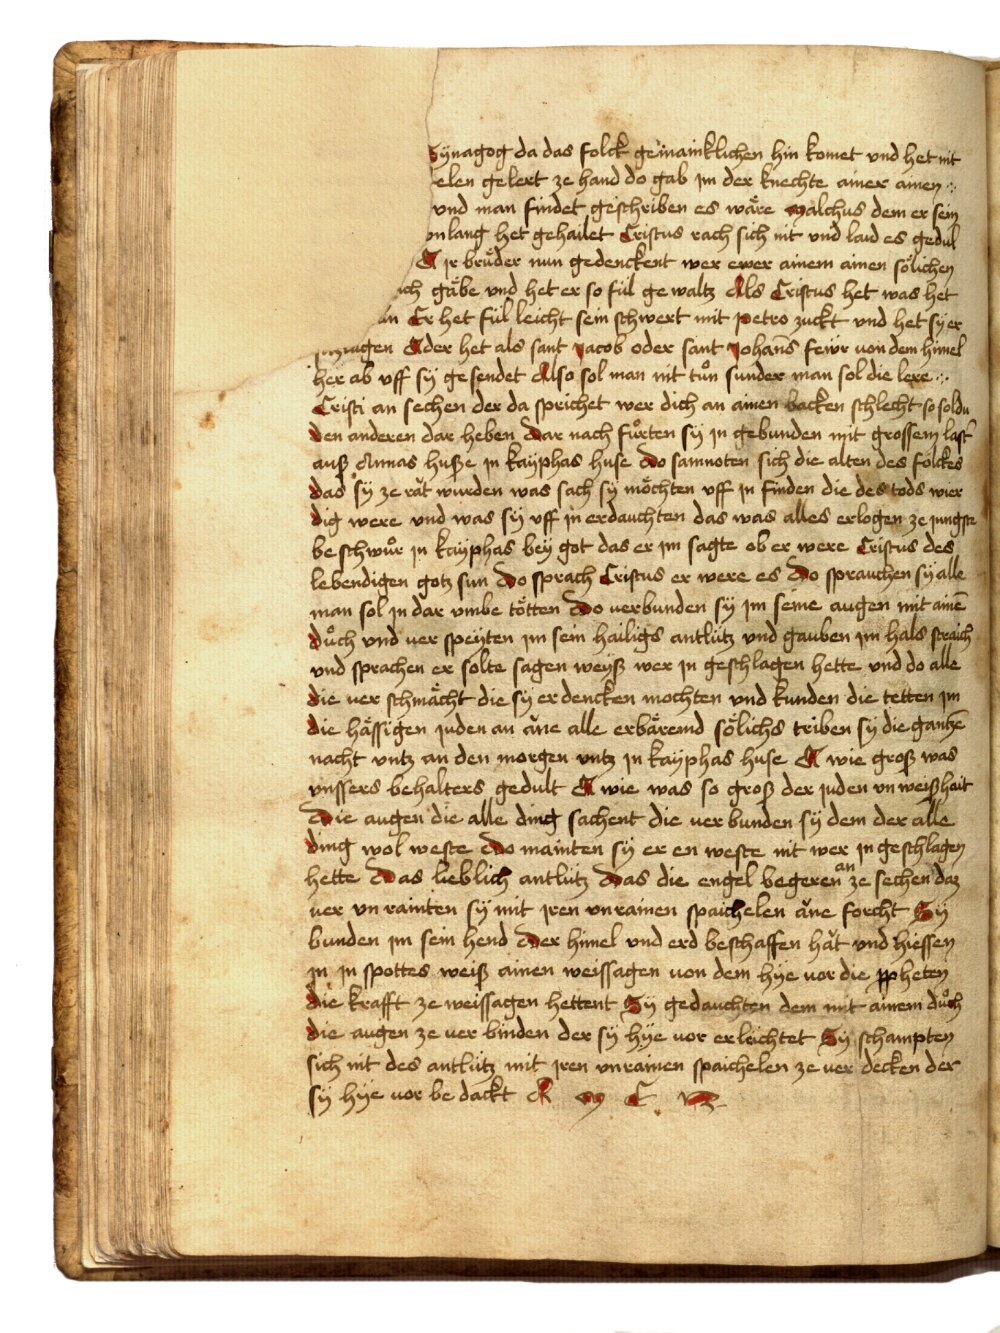 Synagog da das folck gemainklichen hin komet vnd het nit
elen gelert ze hand do gab im der knechte ainer ainen
vnd man findet geschriben es wäre Malchus dem er sein
vnlang het gehailet Cristus rach sich nit vnd laid es gedul
A ir brüder nun gedenckent wer ewer ainem ainen sölichen
ich gäbe vnd het er so fúl gewaltz Als Cristus het was het
an Er het fúl leicht sein schwert mit petro zuckt vnd het sy er
schlagen Oder het als sant Jacob oder sant Johans fewr von dem himel
her ab vff sy gesendet Also sol man nit tůn sunder man sol die lere
Cristi an sechen der da sprichet wer dich an ainen backen schlecht so soldu
den anderen dar heben Dar nach fůrten sy in gebunden mit grossem last
auß Annas huße in kayphas huse Do samnoten sich die alten des folckes
das sy ze rät wurden was sach sy möchten vff in finden die des tods wier
dig were vnd was sy vff in erdauchten das was alles erlogen ze jungste
beschwůr in kayphas bey got das er im sagte ob er were Cristus des
lebendigen gotz sun Do sprach Cristus er were es Do sprauchen sy alle
man sol in dar vmbe tötten Do verbunden sy im seine augen mit ainē
důch vnd ver speyten im sein hailigs antlútz vnd gauben im hals straich
vnd sprachen er solte sagen weyß wer in geschlagen hette vnd do alle
die ver schmächt die sy erdencken mochten vnd kunden die tetten im
die hässigen juden an äne alle erbäremd sölichs triben sy die gantzē
nacht vntz an den morgen vntz in kayphas huse A wie groß was
vnssers behalters gedult A wie was so groß der juden vnweißhait
Die augen die alle ding sachent die ver bunden sy dem der alle
ding wol weste Do mainten sy er en weste nit wer in geschlagen
hette Das lieblich antlútz Das die engel begeren an ze sechen daz
ver vnrainten sy mit iren vnrainen spaichelen äne forcht Sy
bunden im sein hend Der himel vnd erd beschaffen hät vnd hiessen
in in spottes weiß ainen weissagen von dem hye vor die ppheten
die krafft ze weissagen hettent Sy gedauchten dem mit ainem důch
die augen ze ver binden der sy hye vor erleichtet Sy schampten
sich nit des antlútz mit iren vnrainen spaichelen ze ver decken der
sy hye vor be dackt A M E N